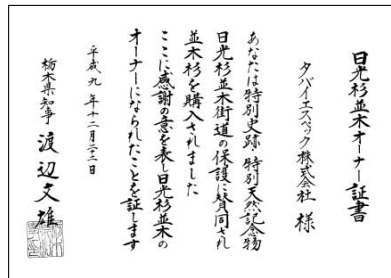 日光杉並木オーナー証書
タバイエスペック株式会社 様
あなたは特別史跡 特別天然記念物
日光杉並木街道の保護に賛同され
並木杉を購入されました
ここに感謝の意を表し日光杉並木の
オーナーになられたことを証します
平成九年十二月二十三日
栃木県知事 渡辺文雄